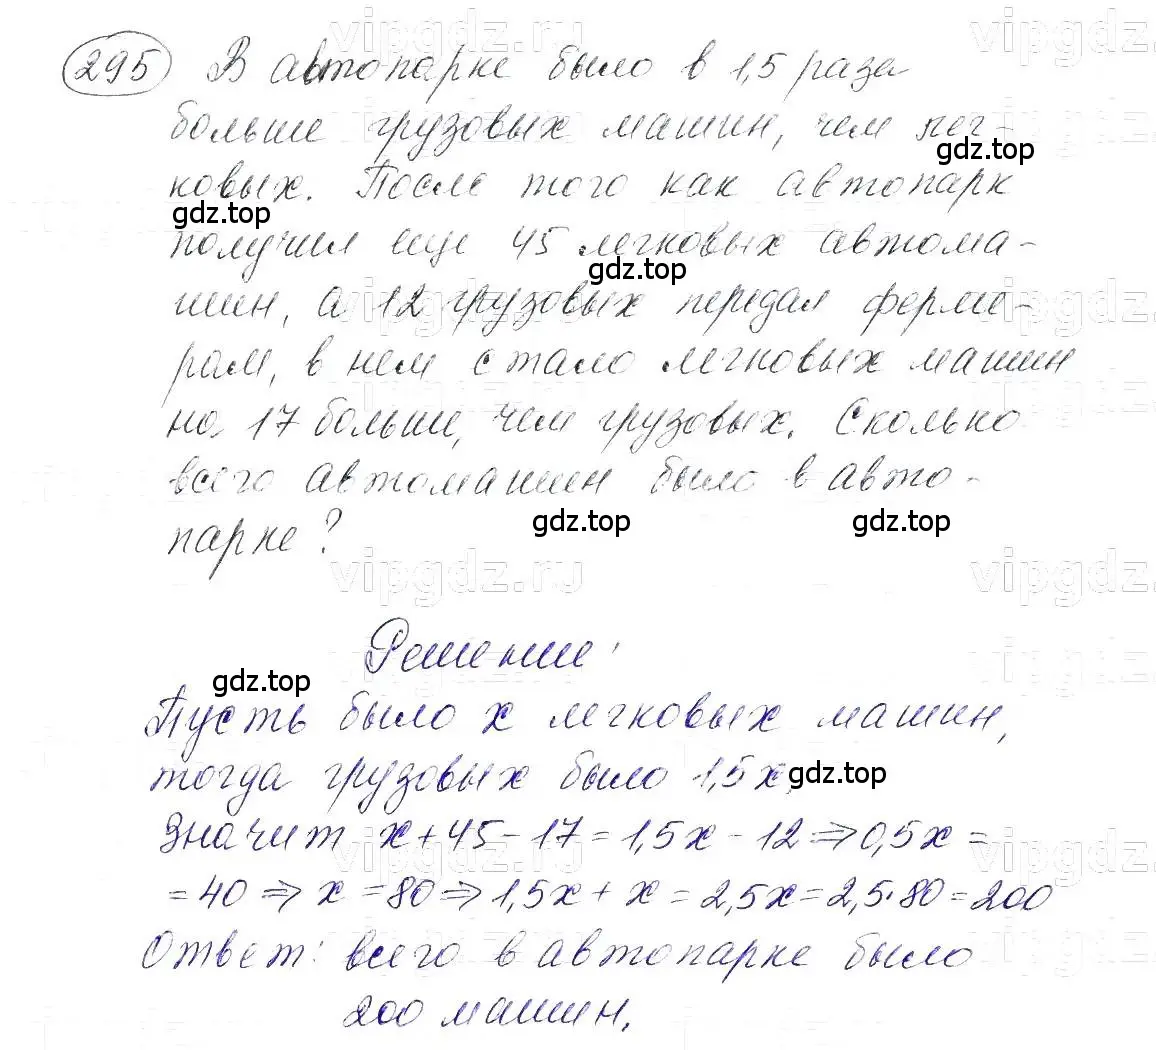 vipgdz.ru vipgdz
295 В автопарке было в 1,5 раза
больше грузовых машин, чем лег-
gdz.top
ковых. После того как автопарк
gdz.top
получил еще 45 легковых автома-
gdz.top
шин, а 12 грузовых передал ферме-
vipgdz.ru vipgdz
рам, в нем стало легковых машин
на 17 больше, чем грузовых. Сколько
всего автомашин было в авто-
gdz.top gdz.top
парке?
vipgdz.ru vipgdz
Решение:
gdz.top
Пусть было x легковых машин,
тогда грузовых было 1,5x,
gdz.top
Значит x+45-17=1,5x-12⇒0,5x=
vipgdz.ru vipgdz
=40⇒x=80⇒1,5x+x=2,5x=2,5·80=200
Ответ: всего в автопарке было
200 машин.